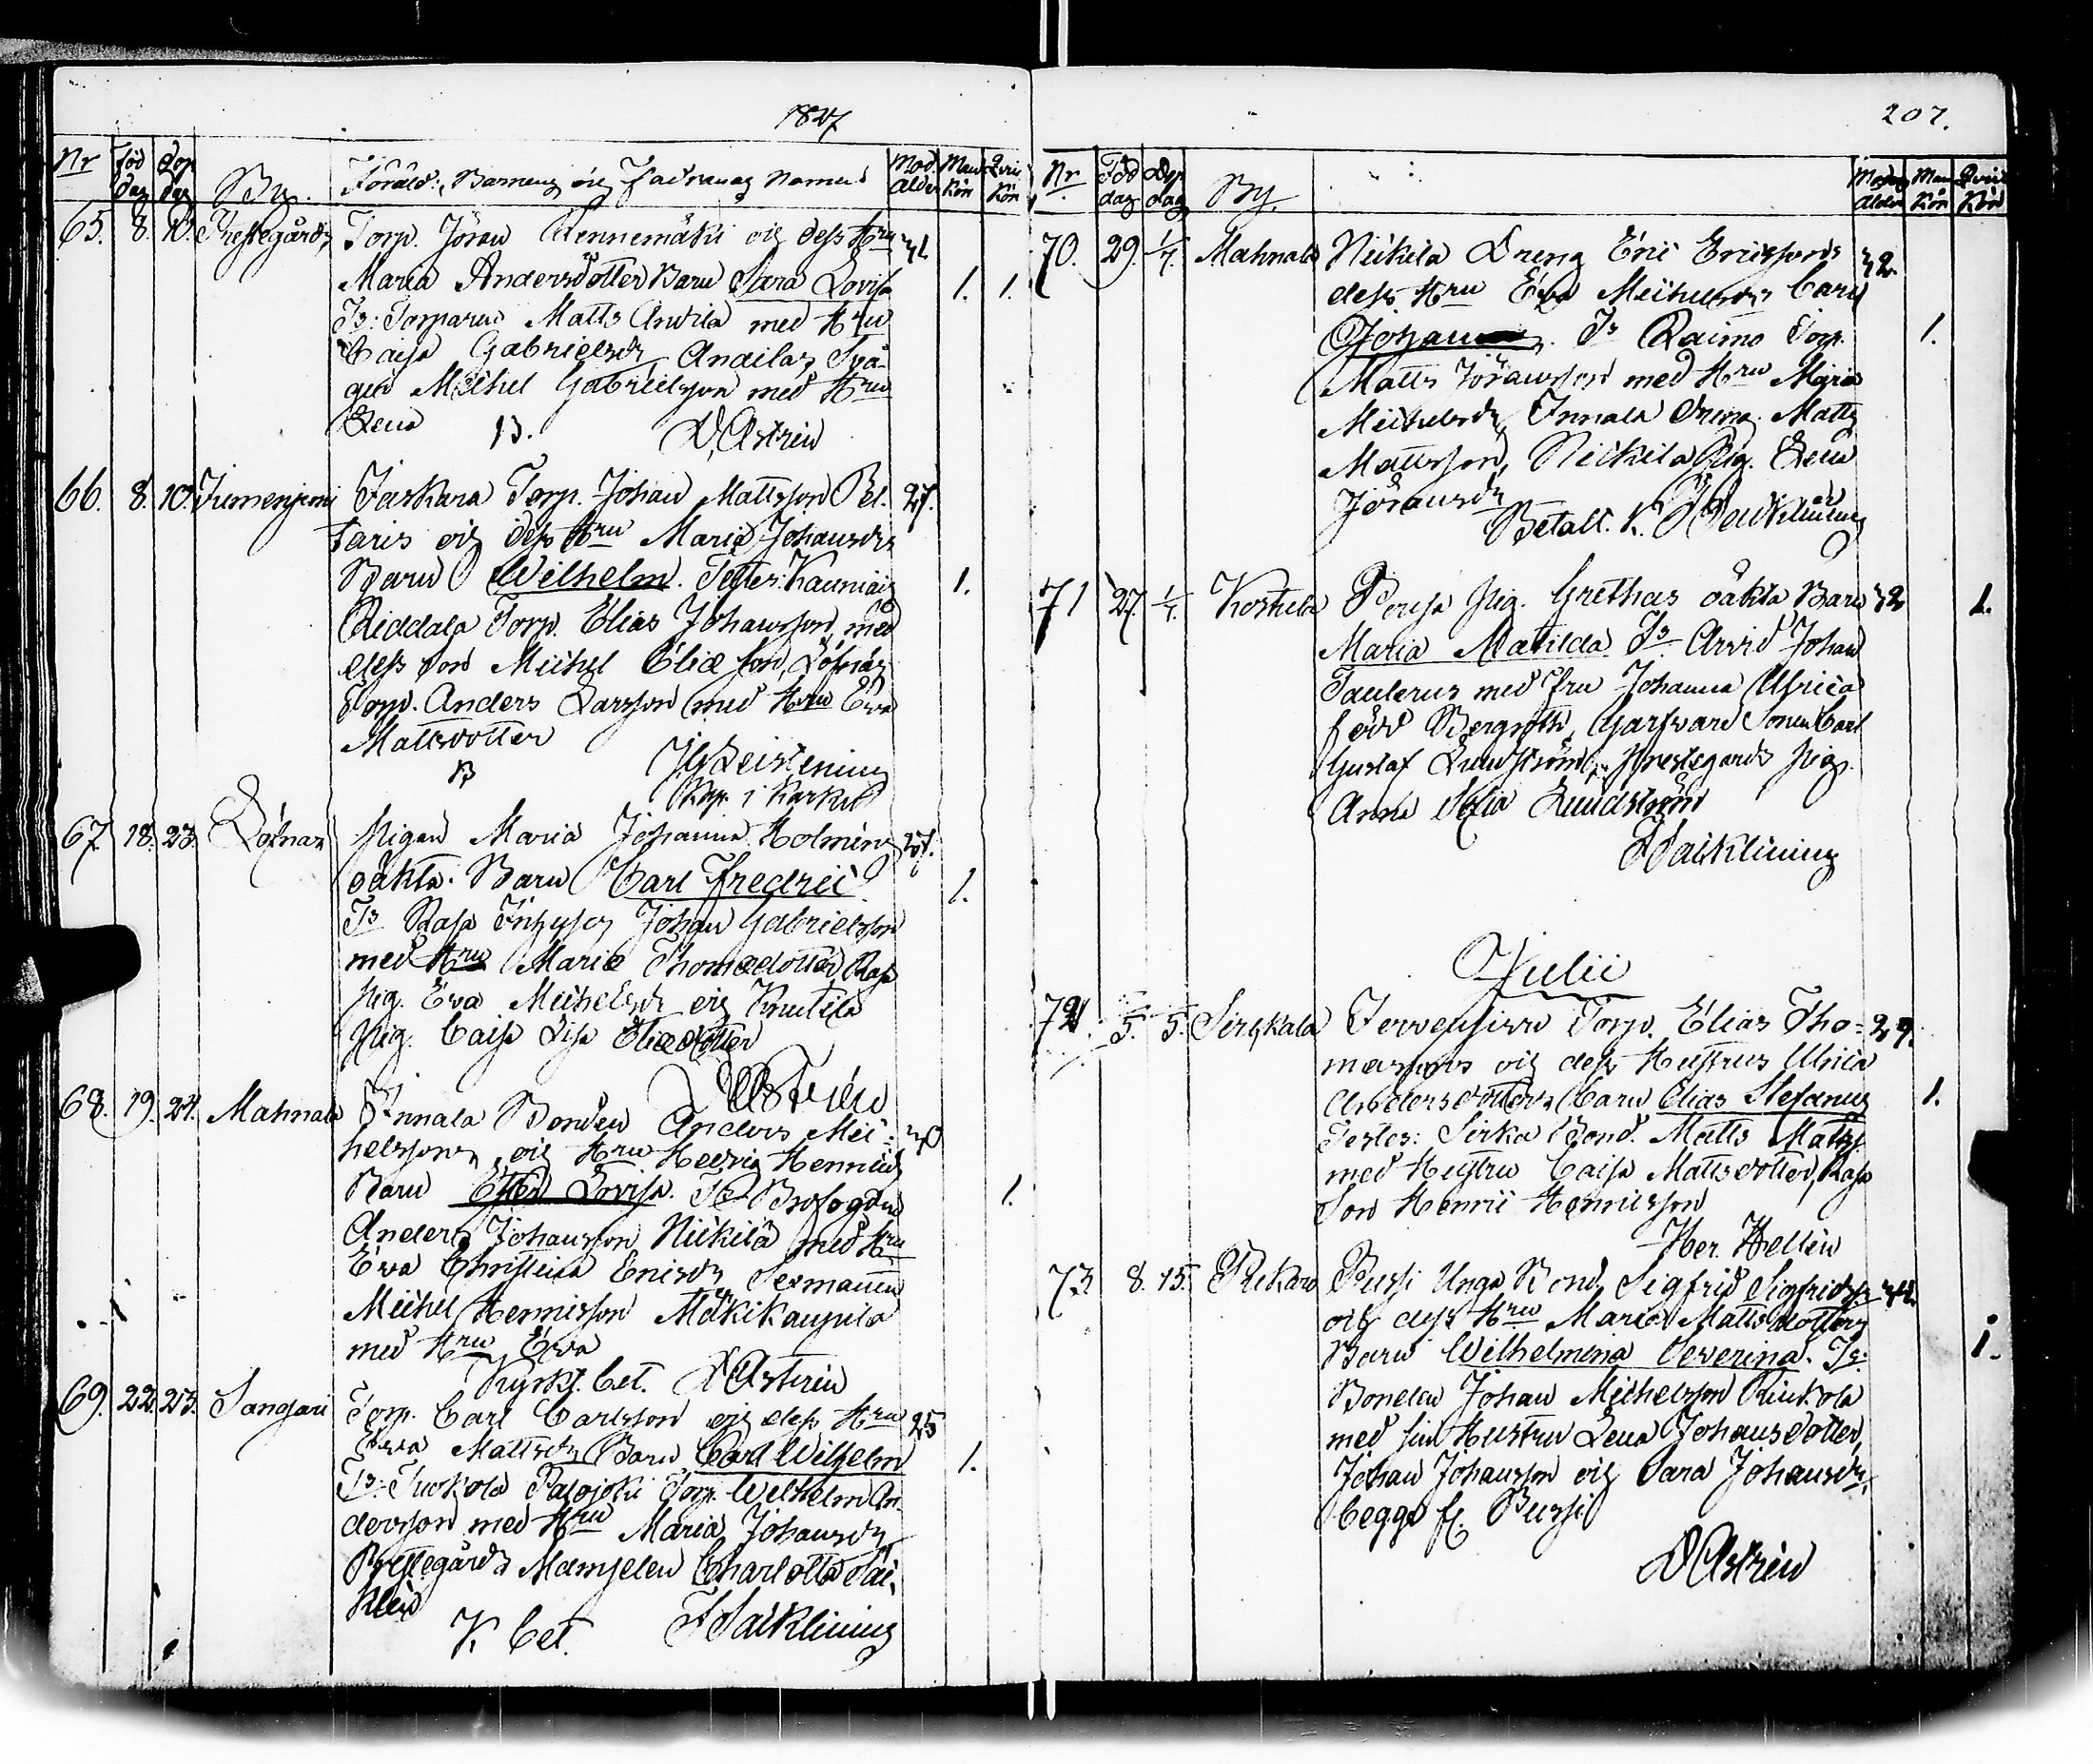 1827
Nr Föd dag Döp dag By. Föräld: Barnens och Faddrarnas Namn Mod. Ålder Man Kön Qvin Kön
65. 8. 10. Prestegårds Torp. Jöran Wennemäki och dess Hru
Maria Andersdotter Barn Sara Lovisa 1. 1.
Ts: Torparen Matts Anvila med Hru
Caisa Gabrielsdr Anailas Svå-
ger Michel Gabrielsson med Hru
Lena B. Astrén
66. 8. 10. Jumesjemi Jaskara Torp. Johan Mattsson Pel- 27.
taris och dess Hru Maria Johansdrs
Barn Wilhelm. Testes: Kauniais 1.
Riddala Torp. Elias Johansson, med
dess son Michel Eliæ son, Löfnäs
Torp. Anders Larsson med Hru Eva
Mattsdotter
B Leistenius
Kap. i Karku
67. 18. 23. Löfnäs Pigan Maria Johanna Holméns 27.
oäkta Barn Carl Fredric 1.
Ts Rasa Inhyses Johan Gabrielsson
med Hru Maria Thomædotter, Rasa
Pig. Eva Michelsdr och Knutila
Pig. Caisa Lisa Eliædotter
Astrén
68. 19. 24. Mahnala Innala Bonden Anders Mic-
helssons och Hru Hedvig Henricsdr
Barn Ester Lovisa. Ts Brofogden 1.
Anders Johansson Nickilä med Hru
Eva Christina Ericsdr Sexmannen
Michel Henricsson Mäkikaupila
med Hru Eva
Kyrkf. bet. Astrén
69. 22. 23. Sangari Torp. Carl Carlsson och dess Hru 25
Eva Mattsdrs Barn Carl Wilhelm 1.
Ts: Tuokola Palojoki Torp. Wilhelm An-
dersson med Hru Maria Johansdr
Prestegårds Mamselen Charlotta Sai-
klin
K. bet. Saiklining
207.
Nr Föd dag Döp dag By. Modrens Ålder Man Kön Qvin Kön
70. 29. 1/7. Mahnala Nickila Dreng Eric Ericssons 32.
dess Hru Eva Michelsdrs Barn
Johan. Ts Raimo Torp. 1.
Matts Jöransson med Hru Maria
Michelsdr, Innala Dreng Matts
Mattsson, Nickila Pig. Lena
Jöransdr
Betalt. K. Saiklining
71 27. 1/7. Koskela Pousa Pig. Grethas oäkta Barn 32 1.
Maria Matilda Ts Arvid Johan
Taulerus med fru Johanna Ulrica
född Bergroth, Garfvare Sonen Carl
Gustaf Lundström, Prestegårds Pig.
Anna Sofia Lundström
Saiklining
Julii
72 5. 5. Sirkkala Torp. Elias Tho- 29.
massons och dess Hustrus Ulrica
Andersdotters Barn Elias Stefanus 1.
Testes: Sirka Bond. Matts Mattss.
med Hustru Caisa Mattsdotter, Rasa
Son Henric Henricsson
Her. Hellén
73. 8. 15. Bussi Unga Bond. Sigfrid Sigfridss.
och dess Hru Maria Mattsdotters
Barn Wilhelmina Severina. Ts: 1.
Bonden Johan Michelsson Riukola
med sin Hustru Lena Johansdotter,
Johan Johansson och Sara Johansdr,
begge fr. Bussi
Astrén